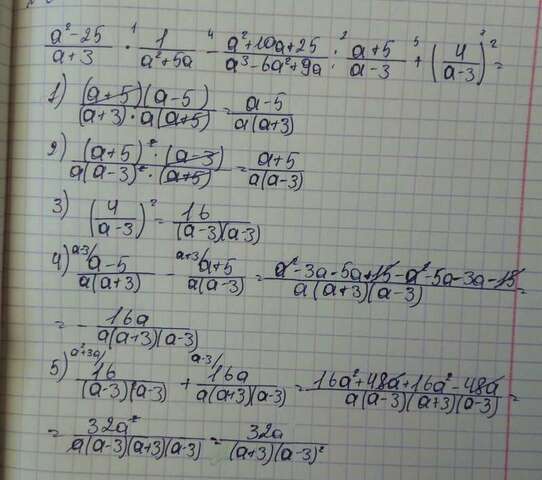 (a²-25)/(a+3) ·¹ 1/(a²+5a) -⁴ (a²+10a+25)/(a³-6a²+9a) :² (a+5)/(a-3) +⁵ (4/(a-3))²³ =
1) ((a+5)(a-5))/((a+3)·a(a+5)) = (a-5)/(a(a+3))
2) ((a+5)²·(a-3))/(a(a-3)²·(a+5)) = (a+5)/(a(a-3))
3) (4/(a-3))² = 16/((a-3)(a-3))
4) a-3/ (a-5)/(a(a+3)) - a+3/ (a+5)/(a(a-3)) = (a²-3a-5a+15-a²-5a-3a-15)/(a(a+3)(a-3)) =
= - 16a/(a(a+3)(a-3))
5) a²+3a/ 16/((a-3)(a-3)) + a-3/ 16a/(a(a+3)(a-3)) = (16a²+48a+16a²-48a)/(a(a-3)(a+3)(a-3)) =
= 32a²/(a(a-3)(a+3)(a-3)) = 32a/((a+3)(a-3)²)